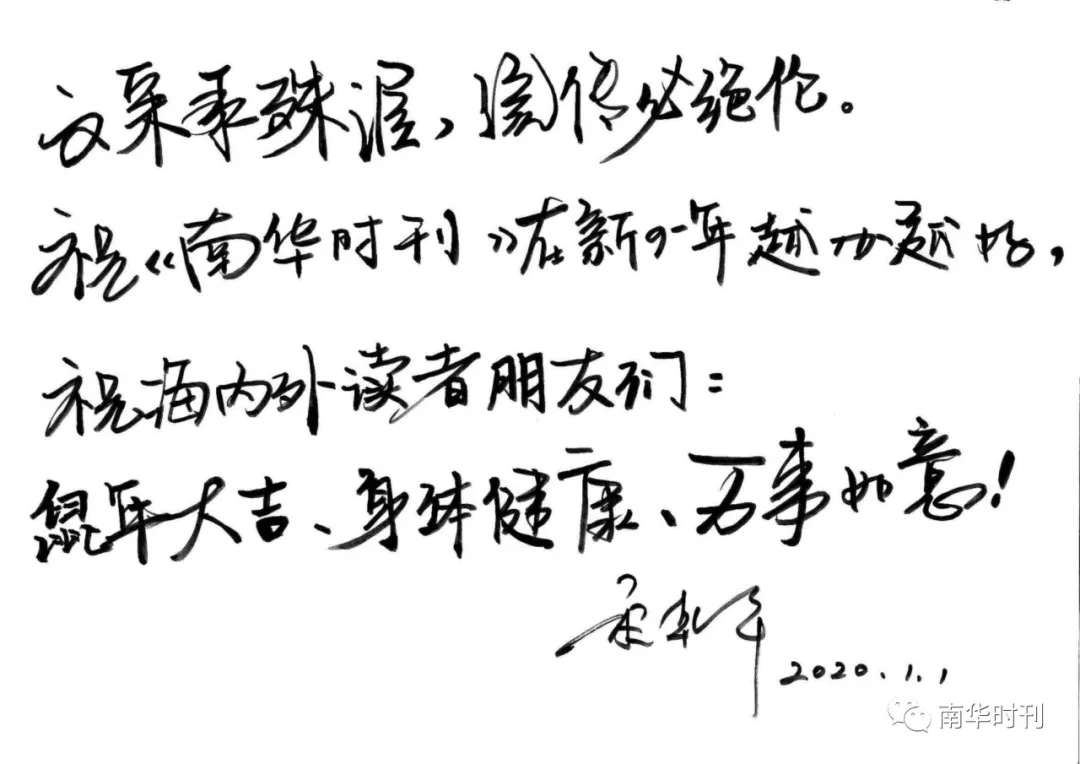 文采承殊渥，流传必绝伦。
祝《南华时刊》在新的一年越办越好，
祝海内外读者朋友们：
鼠年大吉、身体健康、万事如意！
2020.1.1
南华时刊